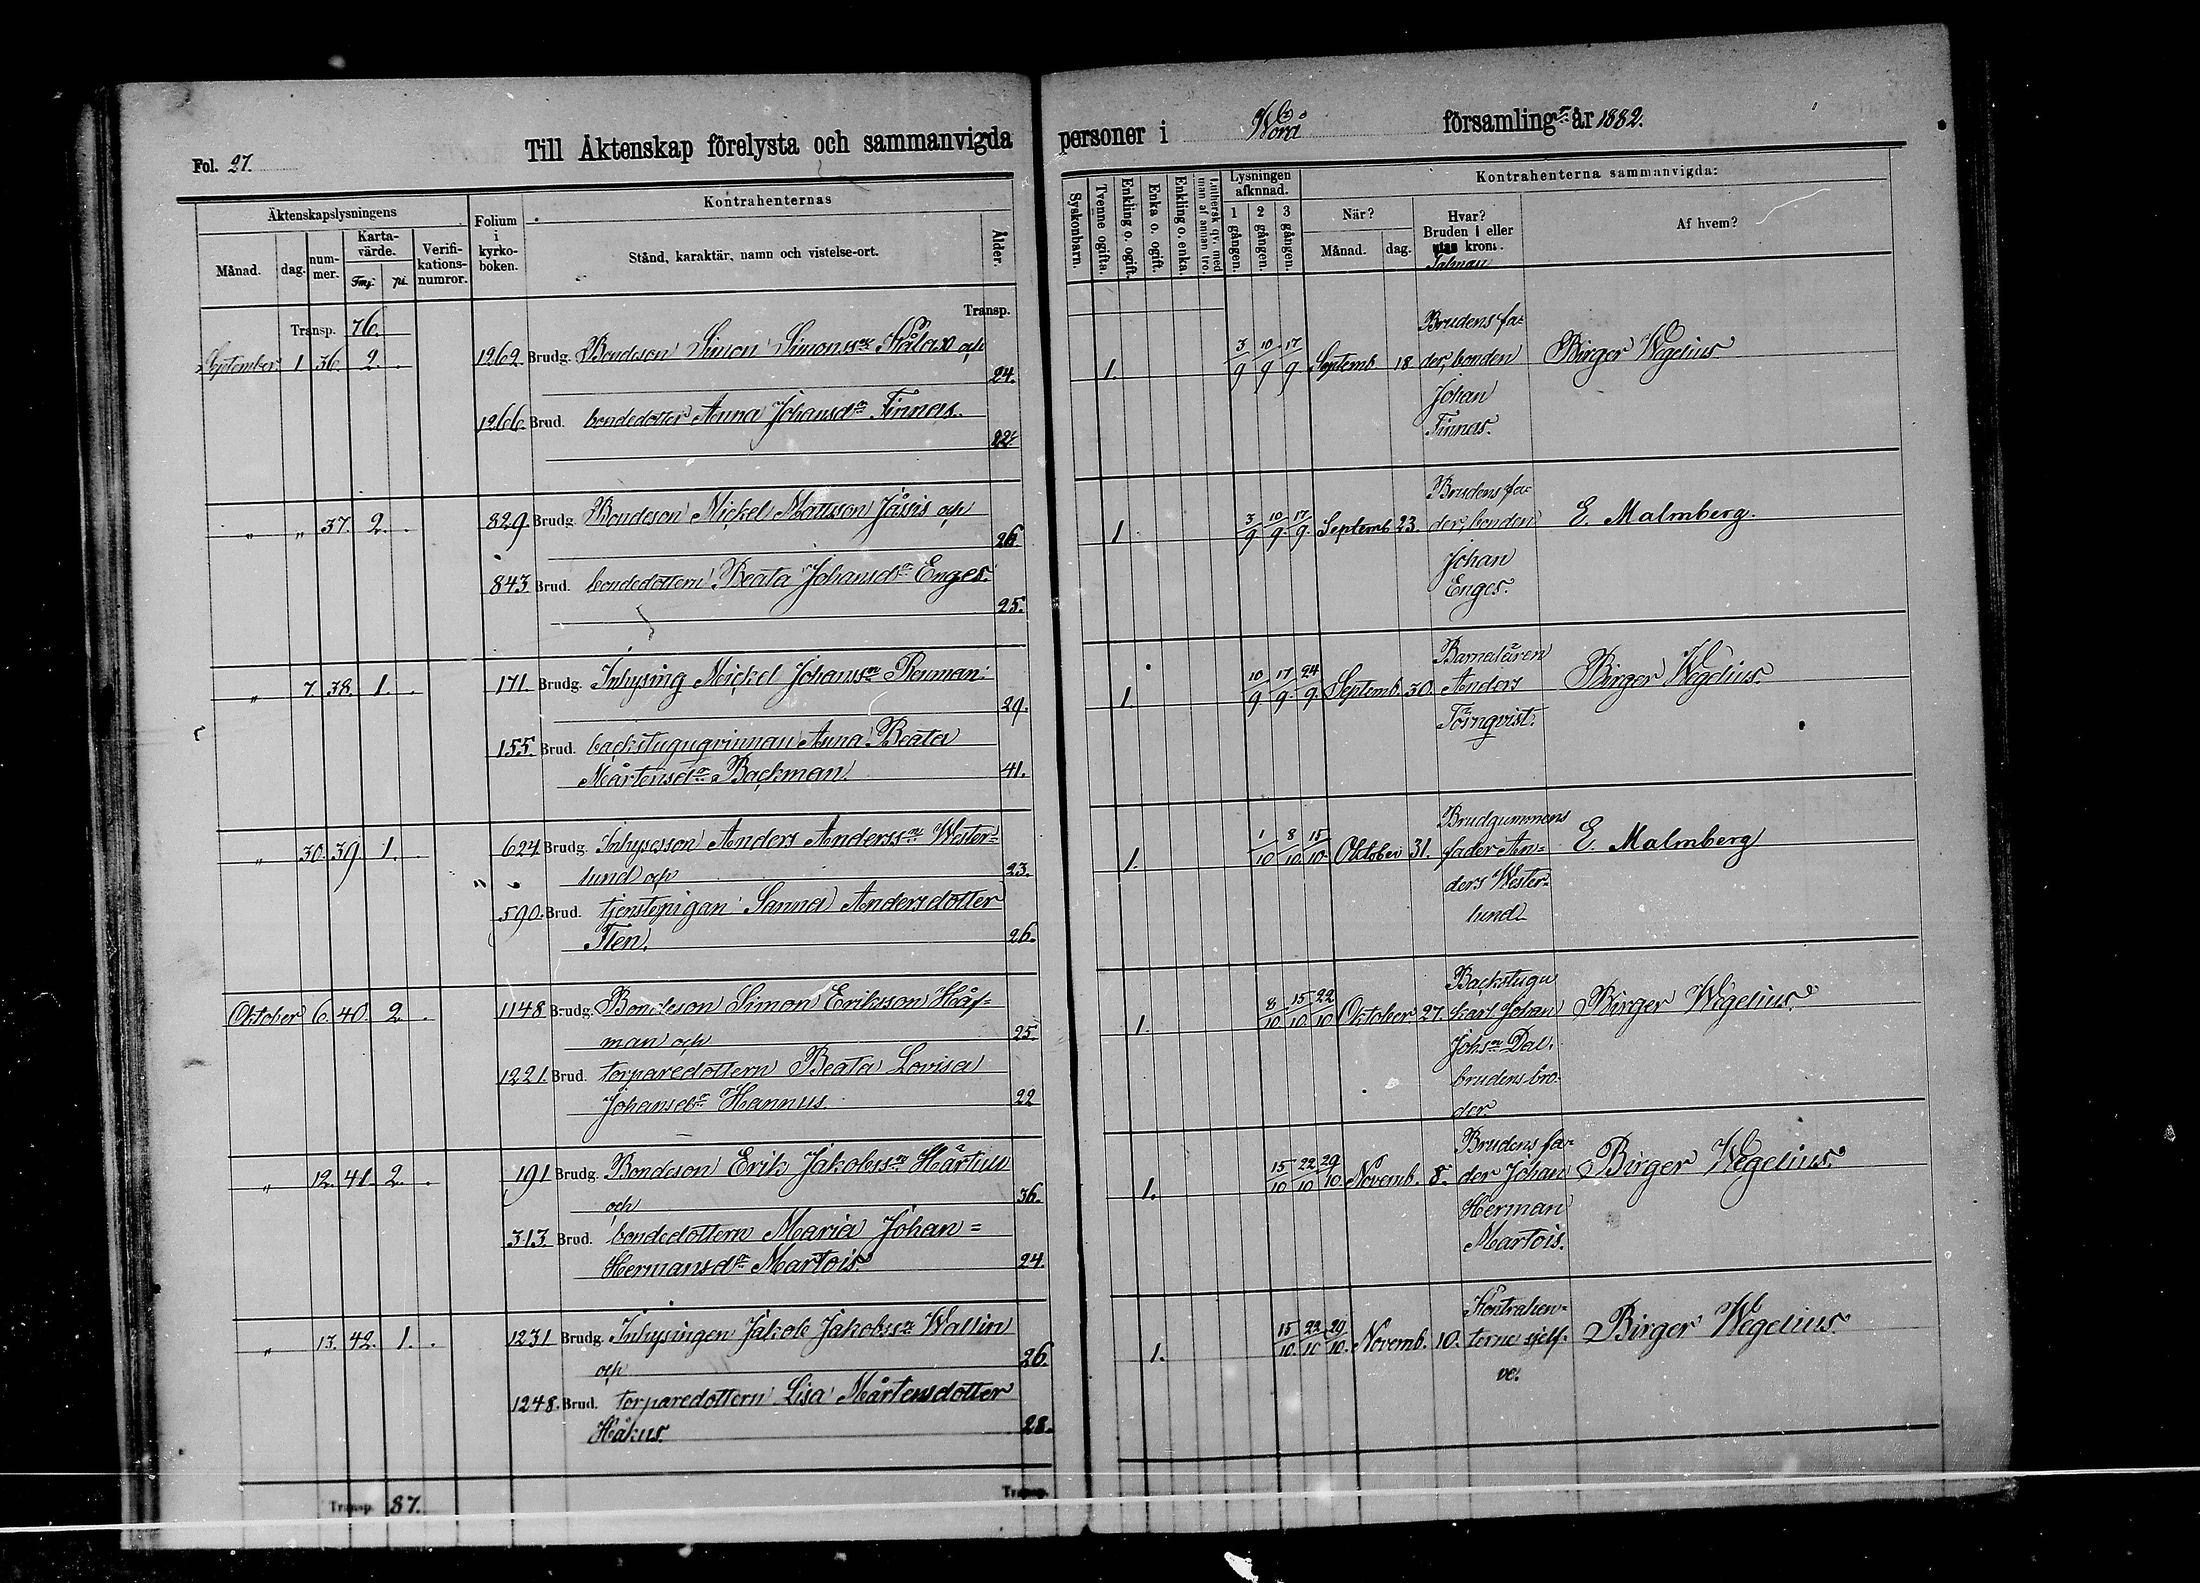 Fol. 27.
Till Äktenskap förelysta och sammanvigda personer i Wörå församling år 1882.
Äktenskapslysningens
Månad.
dag.
nummer.
Kartavärde.
Fmf. pi.
Verifikationsnumror.
Folium i kyrkoboken.
Kontrahenternas
Stånd, karaktär, namn och vistelse-ort.
Ålder.
Syskonbarn.
Tvenne ogifta.
Enkling o. ogift.
Enka o. ogift.
Enkling o. enka.
Luthersk qv. med man af annan tro.
Lysningen afkunnad.
1 gången.
2 gången.
3 gången.
Kontrahenterna sammanvigda:
När?
Månad. dag.
Hvar?
Bruden i eller
utan krona.
Talman
Af hvem?
Transp. 76. Transp.
September 1 36. 2. 1262. Brudg. Bondeson Simon Simonss:n och 24.
1266. Brud. bondedotter Anna Johansd:r Finnas. 22.
1. 3/9 10/9 17/9 Septemb. 18 Birger Wegelius
Brudens fa-
der, bonden
Johan
Finnas.
" " 37. 2. 829. Brudg. Bondeson Mickel Mattsson Jåsis och 26.
843. Brud. bondedottern Beata Johansd:r Enges. 25.
1 3/9 10/9. 17/9. Septemb 23. E. Malmberg.
Brudens fa-
der, bonden
Johan
Enges.
" 7. 38. 1. 171. Brudg. Inhysing Mickel Johanss:n Renman. 29.
155. Brud. backstuguqvinnan Anna Beata
Mårtensd:r Backman 41.
1. 10/9 17/9 24/9. Septemb. 30. Birger Wegelius.
Anders
Törnqvist.
" 30. 39. 1. 624. Brudg. Inhysesson Anders Anderss:n Wester-
lund och 23.
590. Brud. tjenstepigan Sanna Andersdotter
Iten. 26.
1. 1/10 8/10 15/10 Oktober 31. E. Malmberg
Brudgummens
fader An-
ders Wester-
lund
Oktober 6. 40. 2. 1148. Brudg. Bondeson Simon Eriksson Håf-
man och 25.
1221. Brud. torparedottern Beata Lovisa
Johansd:r Hannus. 22
1. 8/10 15/10 22/10 Oktober 27. Birger Wegelius.
Backstugu
karl Johan
Johs:n Dal.
brudens bro-
der.
" 12. 41. 2. 191 Brudg. Bondeson Erik Jakobss:n Härtull
och 36.
313. Brud. bondedottern Maria Johan=
Hermansd:r Martois. 24.
1. 15/10 22/10 29/10 Novemb. 8. Birger Wegelius.
Brudens fa-
der Johan
Herman
Martois.
" 13. 42. 1. 1231 Brudg. Inhysingen Jakob Jakobss:n Wallin
och 26
1248. Brud. torparedottern Lisa Mårtensdotter
Håkus. 28.
1. 15/10. 22/10 29/10. Novemb. 10. Birger Wegelius.
Kontrahen-
terne sjelf-
ve.
Transp. 87. Transp.